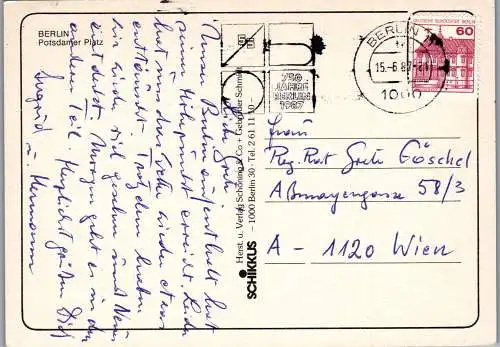 BERLIN
Potsdamer Platz
Liebe Grete!
Unser Berlinaufenthalt hat
seinen Höhepunkt erreicht. Leider
hat uns das Wetter wieder etwas
enttäuscht. Trotzdem haben
wir wieder viel gesehen und Neues
entdeckt. Morgen geht es in den
anderen Teil. Herzlichst grüßen Dich
Ingrid
u. Hermann
SCHIKKUS
Herst. u. Verlag Schöning & Co + Gebrüder Schmidt
– 1000 Berlin 30 · Tel. 2 61 11 10 –
750
JAHRE
BERLIN
1987
BERLIN
15.-6.87
1000
DEUTSCHE BUNDESPOST BERLIN
60
Frau
Reg. Rat Grete Göschel
Aßmayergasse 58/3
A - 1120 Wien